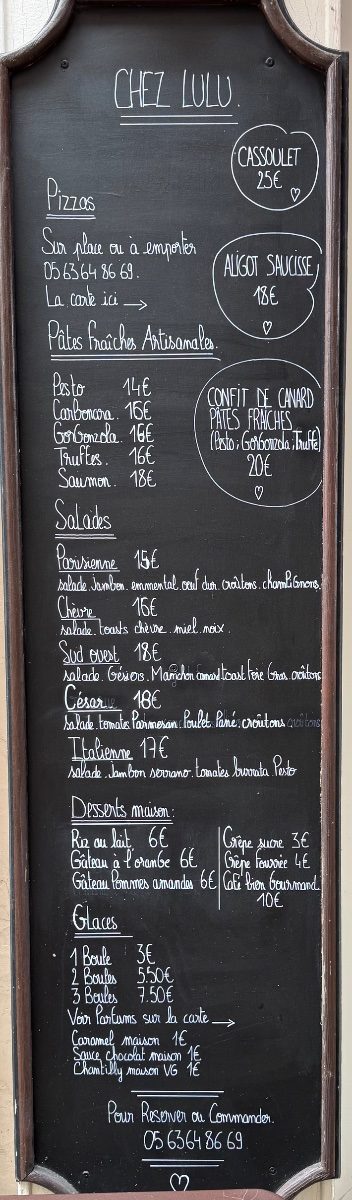 CHEZ LULU.
CASSOULET
25€
Pizzas
Sur place ou à emporter
05 63 64 86 69.
La carte ici →
ALIGOT SAUCISSE
18€
Pâtes fraîches Artisanales.
Pesto 14€
Carbonara. 16€
Gorgonzola. 16€
Truffes. 16€
Saumon. 18€
CONFIT DE CANARD
PÂTES FRAÎCHES
(Pesto; Gorgonzola; Truffe)
20€
Salades
Parisienne 15€
salade. Jambon. emmental. oeuf dur. croûtons. champignons.
Chèvre 16€
salade. Toasts chèvre. miel. noix.
Sud ouest 18€
salade. Gésiers. canard toast Foie Gras. croûtons
César 18€
salade. tomates Parmesan. Poulet Pané. croûtons
Italienne 17€
salade. Jambon serrano. tomates burrata Pesto
Desserts maison:
Riz au lait 6€
Gâteau à l'orange 6€
Gâteau Pommes amandes 6€
Crêpe sucre 3€
Crêpe Fourrée 4€
Café bien Gourmand
10€
Glaces
1 Boule 3€
2 Boules 5.50€
3 Boules 7.50€
Voir Parfums sur la carte →
Caramel maison 1€
Sauce chocolat maison 1€
Chantilly maison VG 1€
Pour Reserver ou Commander.
05 63 64 86 69